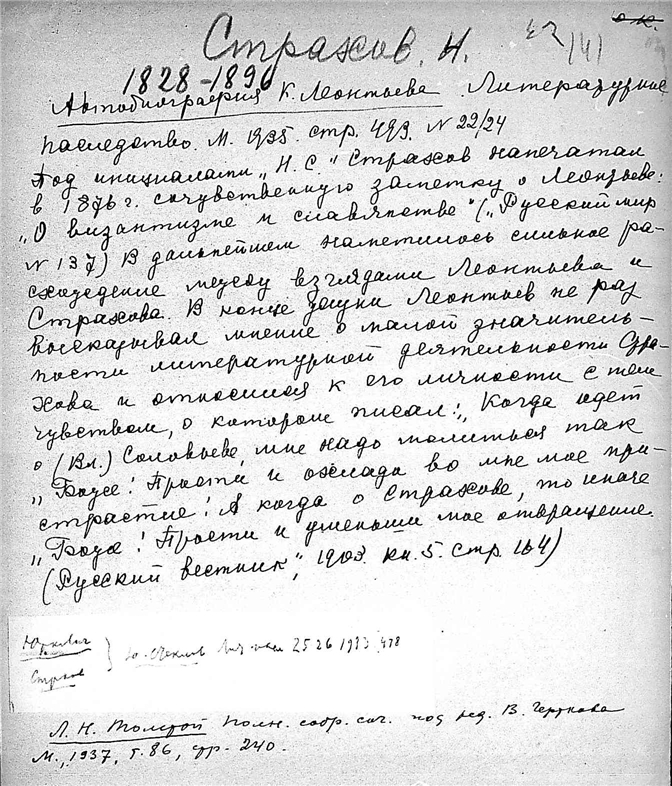 о.к.
Страхов. Н.
1828-1896
Автобиография К. Леонтьева Литературное
наследство. М. 1935. стр. 493. N 22/24
Под инициалами „Н. С." Страхов напечатал
в 1876 г. сочувственную заметку о Леонтьеве:
„О византизме и славянстве" („Русский мир
N 137) В дальнейшем наметилось сильное ра-
схождение между взглядами Леонтьева и
Страхова. В конце жизни Леонтьев не раз
высказывал мнение о малой значитель-
ности литературной деятельности Стра-
хова и относился к его личности с тем
чувством, о котором писал: „Когда идет
о (Вл.) Соловьеве, мне надо молиться так
„Боже! Прости и охлади во мне мое при-
страстие! А когда о Страхове, то иначе
„Боже! Прости и уменьши мое отвращение.
(Русский вестник", 1903. кн. 5. стр. 164)
Юркевич
Страхов
25 26 1933 478
Л. Н. Толстой полн. собр. соч. под ред. В. Черткова
М., 1937, т. 86, стр. 240.